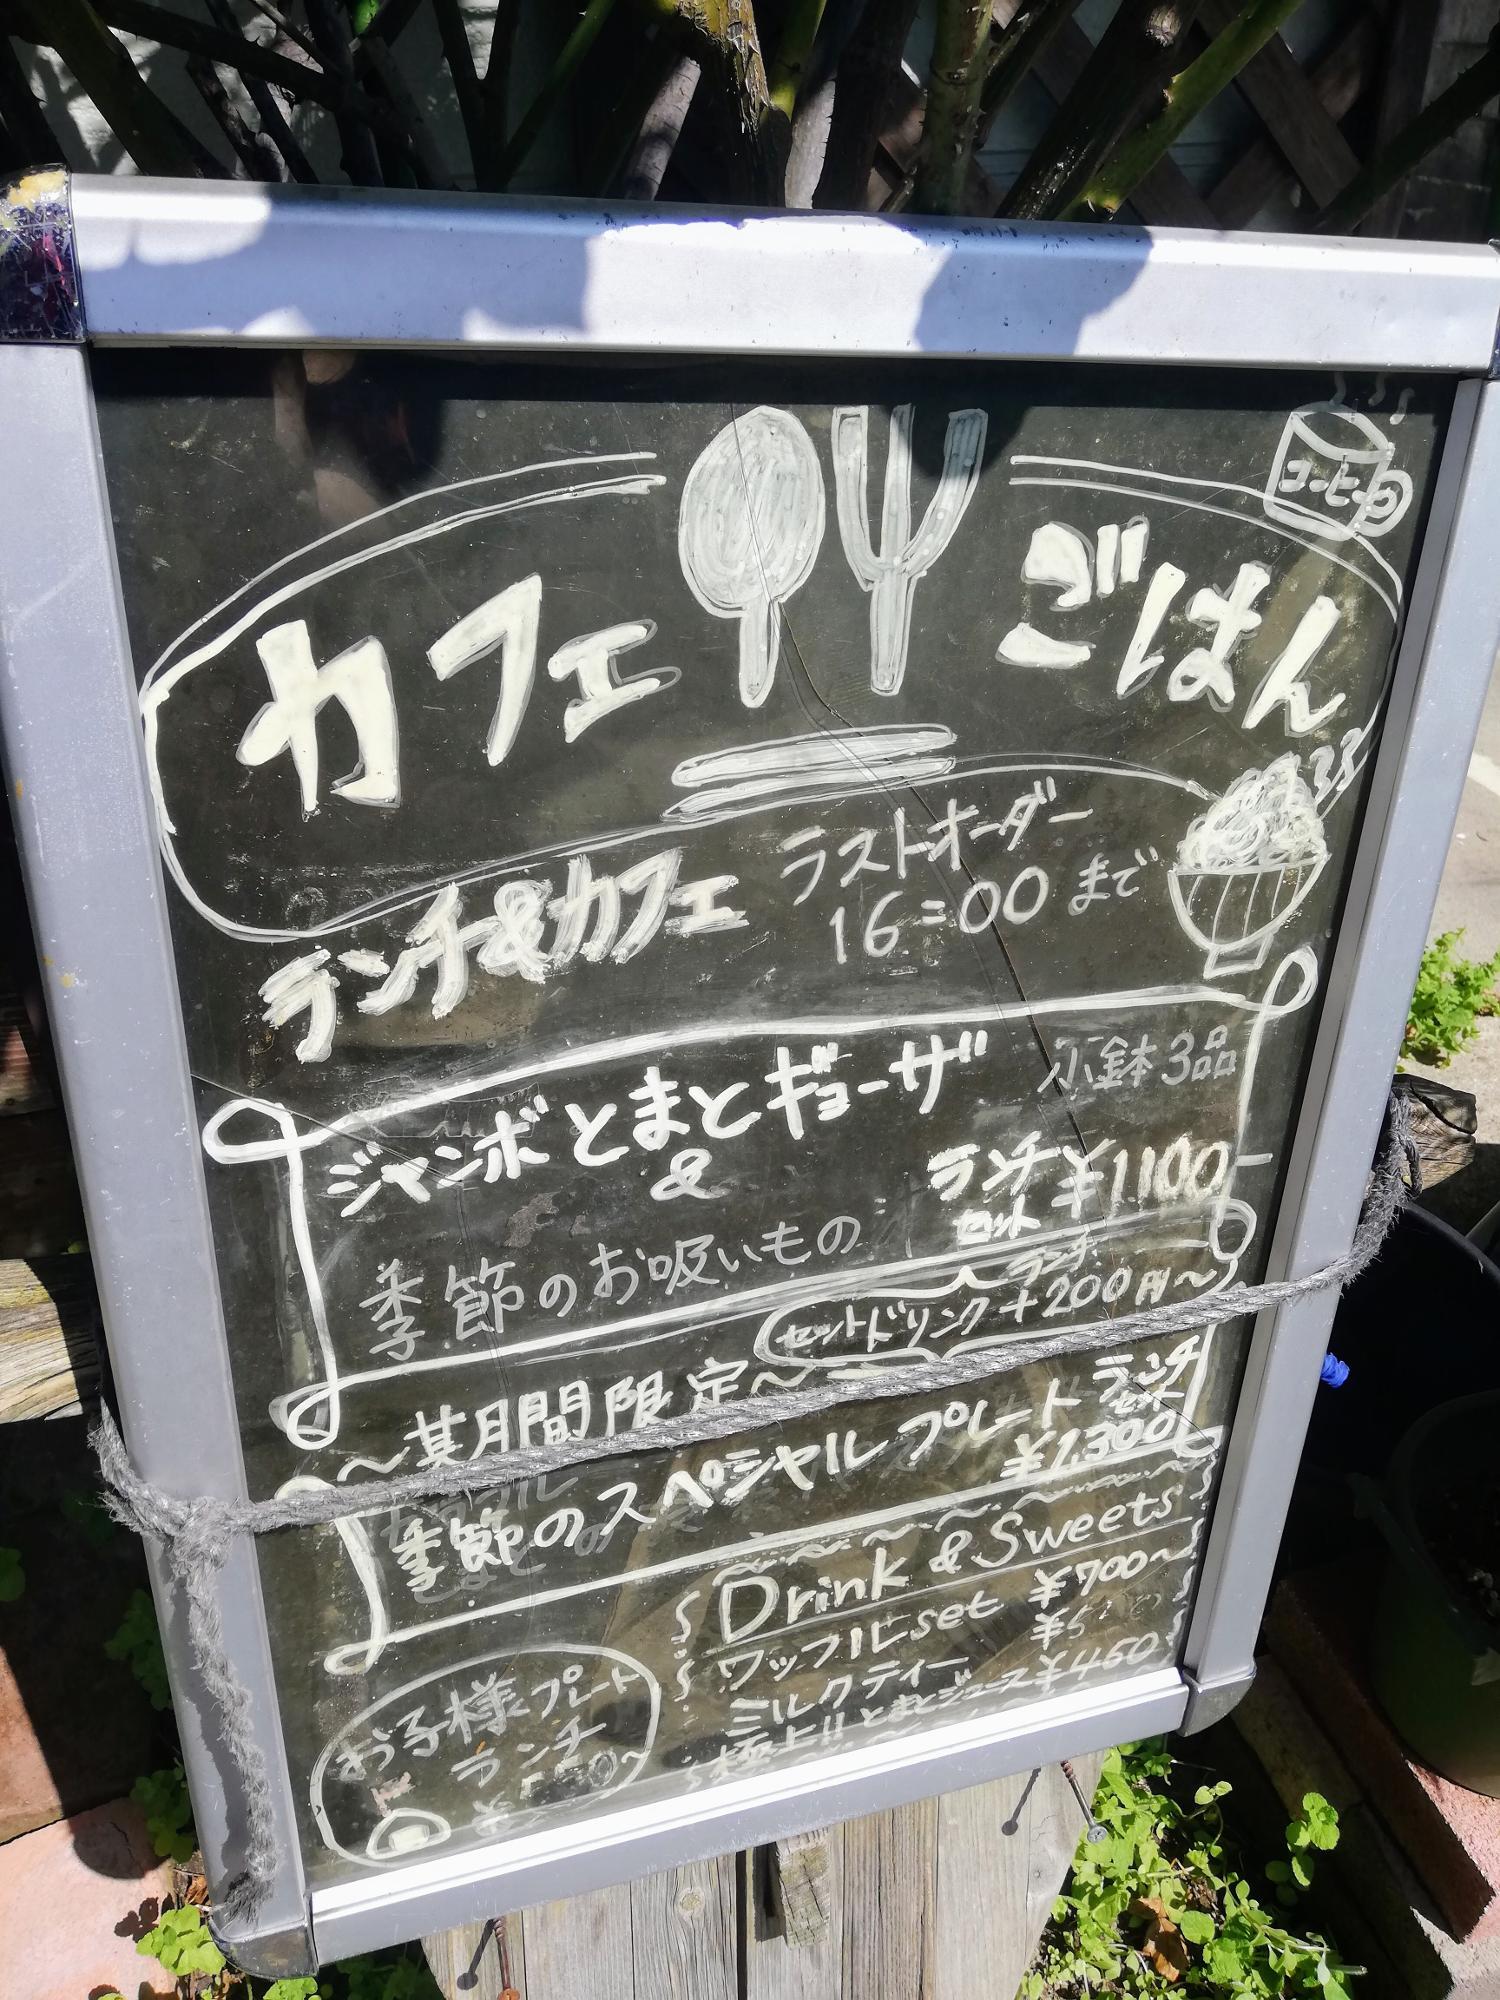 コーヒー
カフェ ごはん
ランチ&カフェ
ラストオーダー
16:00まで
ジャンボとまとギョーザ
&
季節のお吸いもの
小鉢3品
ランチセット ¥1100
ランチ
セットドリンク+200円~
~某期間限定~
季節のスペシャルプレート
ランチセット
¥1,300
Drink & Sweets
ワッフルset ¥700~
ミルクティー
極上!!とまとジュース ¥460
お子様プレート
ランチ